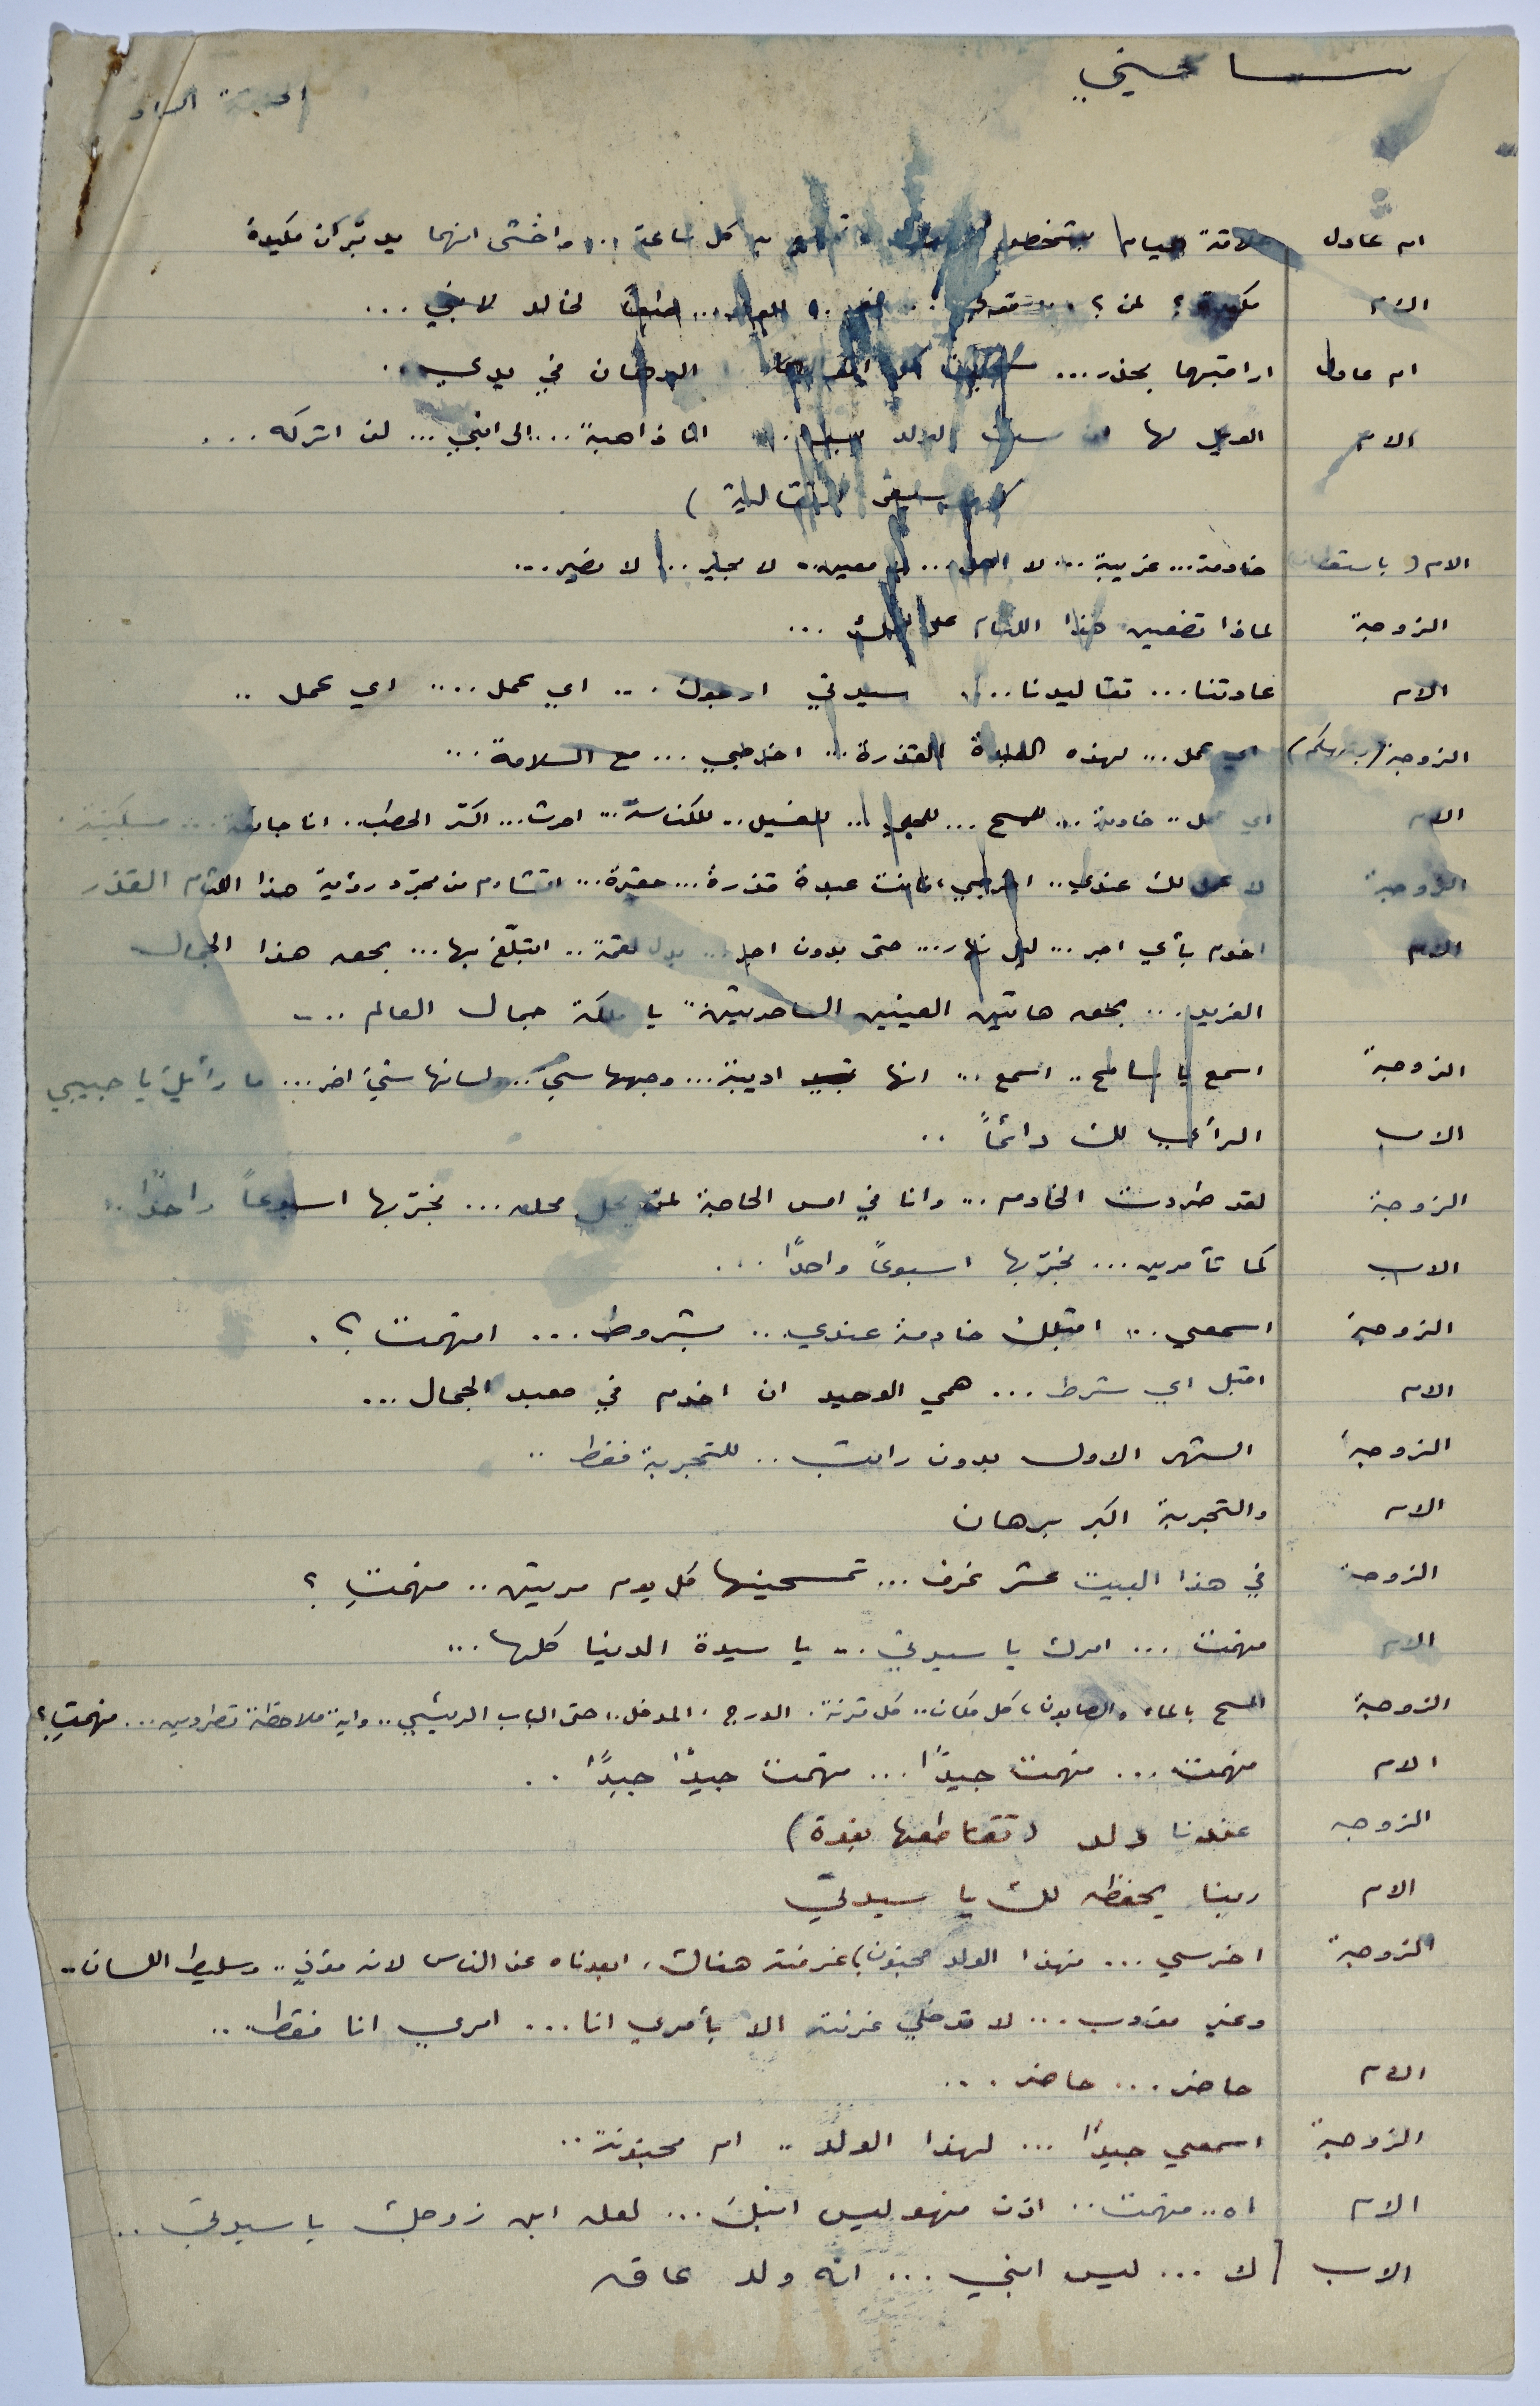 سامحيني
الحلقة
ام عادل علاقة هيام بشخص كل ساعة... واخشى انهما يدبّران مكيدة
الام مكيدة؟ لمن؟ لخالد لابني...
ام عادل اراقبهما بحذر... البرهان في يدي..
الام الويل لها ان الولد انا ذاهبة... الى ابني... لن اتركه...
الام (باستعطاف) خادمة... غريبة... لا اهل... لا معين.. لا مجير.. لا نصير...
الزوجة لماذا تضعين هذا اللثام على ...
الام عادتنا... تقاليدنا... سيدتي ارجوك... اي عمل.... اي عمل..
الزوجة (بتهكم) اي عمل... لهذه العبدة القذرة... اخرجي... مع السلامة...
الام اي عمل.. خادمة... للمسح... للجلي... للغسيل.. للكناسة... احرث... اكسّر الحطب.. انا جائعة... مسكينة.
الزوجة لا عمل لك عندي.. اخرجي، فانت عبدة قذرة... حقيرة... اتشاءم من مجرّد رؤية هذا اللثام القذر
الام اخدم بأي اجر... ليل نهار... حتى بدون اجر... بدل لقمة.. اتبلّغ بها... بحق هذا الجمال
الفريد... بحق هاتين العينين الساحرتين" يا ملكة جمال العالم...
الزوجة اسمع يا سامح.. اسمع... انها اديبة... وجهها شيء.. ولسانها شيء اخر... ما رأيك يا حبيبي
الاب الرأي لك دائماً..
الزوجة لقد طردت الخادم... وانا في امس الحاجة لمن يحل محله... نجرّبها اسبوعاً واحدًا..
الاب كما تأمرين... نجرّبها اسبوعاً واحدًا...
الزوجة اسمعي... اقبلك خادمة عندي.. بشروط... افهمت؟.
الام اقبل اي شرط... همي الوحيد ان اخدم في معبد الجمال...
الزوجة الشهر الاول بدون راتب.. للتجربة فقط..
الام والتجربة اكبر برهان
الزوجة في هذا البيت عشر غرف... تمسحينها كل يوم مرتين.. فهمتِ؟
الام فهمت... امرك يا سيدتي.. يا سيدة الدنيا كلها...
الزوجة المسح بالماء والصابون، كل مكان.. كل قرنة. الدرج. المدخل.. حتى الباب الرئيسي.. واية ملاحظة تطردين... فهمتِ؟
الام فهمت... فهمت جيدًا... فهمت جيدًا جيدًا..
الزوجه عندنا ولد (تقاطعها بقوة)
الام ربنا يحفظه لك يا سيدتي
الزوجة اخرسي... فهذا الولد مجنون، غرفته هناك، ابعدناه عن الناس لانه مؤذي.. وسليط اللسان..
وغير مؤدب... لا تدخلي غرفته الا بأمري انا... امري انا فقط..
الام حاضر... حاضر...
الزوجة اسمعي جيدًا... لهذا الولد.. ام مجنونة..
الام اه.. فهمت.. اذن فهو ليس ابنك... لعله ابن زوجك يا سيدتي..
الاب لا... ليس ابني... انه ولد عاق